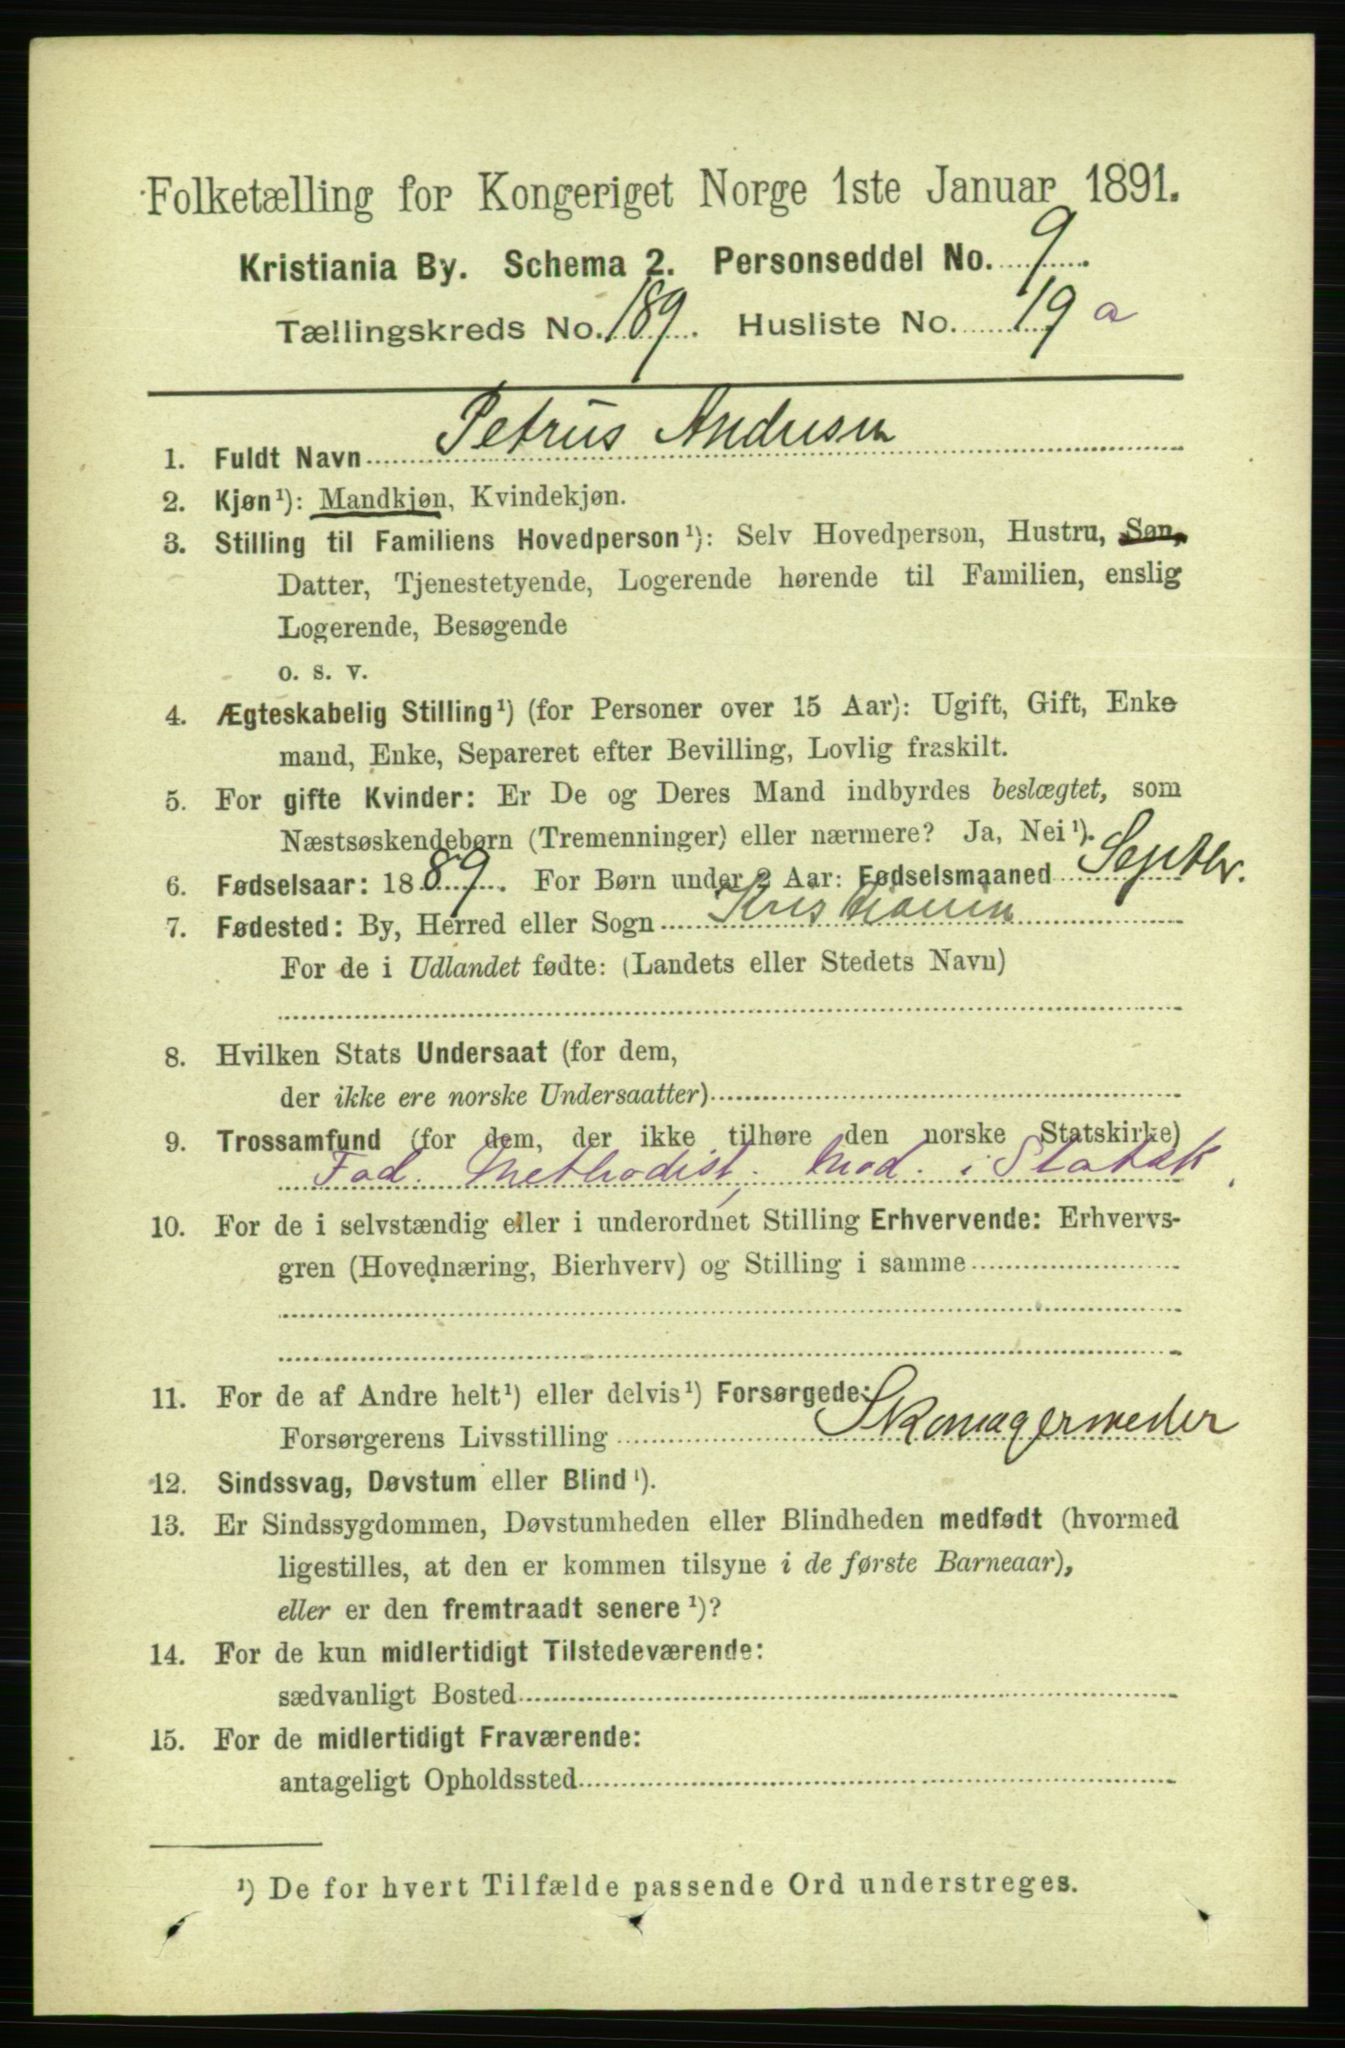 Folketælling for Kongeriget Norge 1ste Januar 1891.
Kristiania By. Schema 2. Personseddel No. 9.
Tællingskreds No. 189. Husliste No. 19 a
1. Fuldt Navn Petrus Andresen
2. Kjøn¹): Mandkjøn, Kvindekjøn.
3. Stilling til Familiens Hovedperson¹): Selv Hovedperson, Hustru, Søn,
Datter, Tjenestetyende, Logerende hørende til Familien, enslig
Logerende, Besøgende
o. s. v.
4. Ægteskabelig Stilling¹) (for Personer over 15 Aar): Ugift, Gift, Enke
mand, Enke, Separeret efter Bevilling, Lovlig fraskilt.
5. For gifte Kvinder: Er De og Deres Mand indbyrdes beslægtet, som
Næstsøskendebørn (Tremenninger) eller nærmere? Ja, Nei¹).
6. Fødselsaar: 1889. For Børn under 2 Aar: Fødselsmaaned Septbr.
7. Fødested: By, Herred eller Sogn Kristiania
For de i Udlandet fødte: (Landets eller Stedets Navn)
8. Hvilken Stats Undersaat (for dem,
der ikke ere norske Undersaatter)
9. Trossamfund (for dem, der ikke tilhøre den norske Statskirke)
Fad. Methodist, Mod. i Statsk.
10. For de i selvstændig eller i underordnet Stilling Erhvervende: Erhvervs-
gren (Hovednæring, Bierhverv) og Stilling i samme
11. For de af Andre helt¹) eller delvis¹) Forsørgede:
Forsørgerens Livsstilling Skomagermester
12. Sindssvag, Døvstum eller Blind¹).
13. Er Sindssygdommen, Døvstumheden eller Blindheden medfødt (hvormed
ligestilles, at den er kommen tilsyne i de første Barneaar),
eller er den fremtraadt senere¹)?
14. For de kun midlertidigt Tilstedeværende:
sædvanligt Bosted
15. For de midlertidigt Fraværende:
antageligt Opholdssted
¹) De for hvert Tilfælde passende Ord understreges.